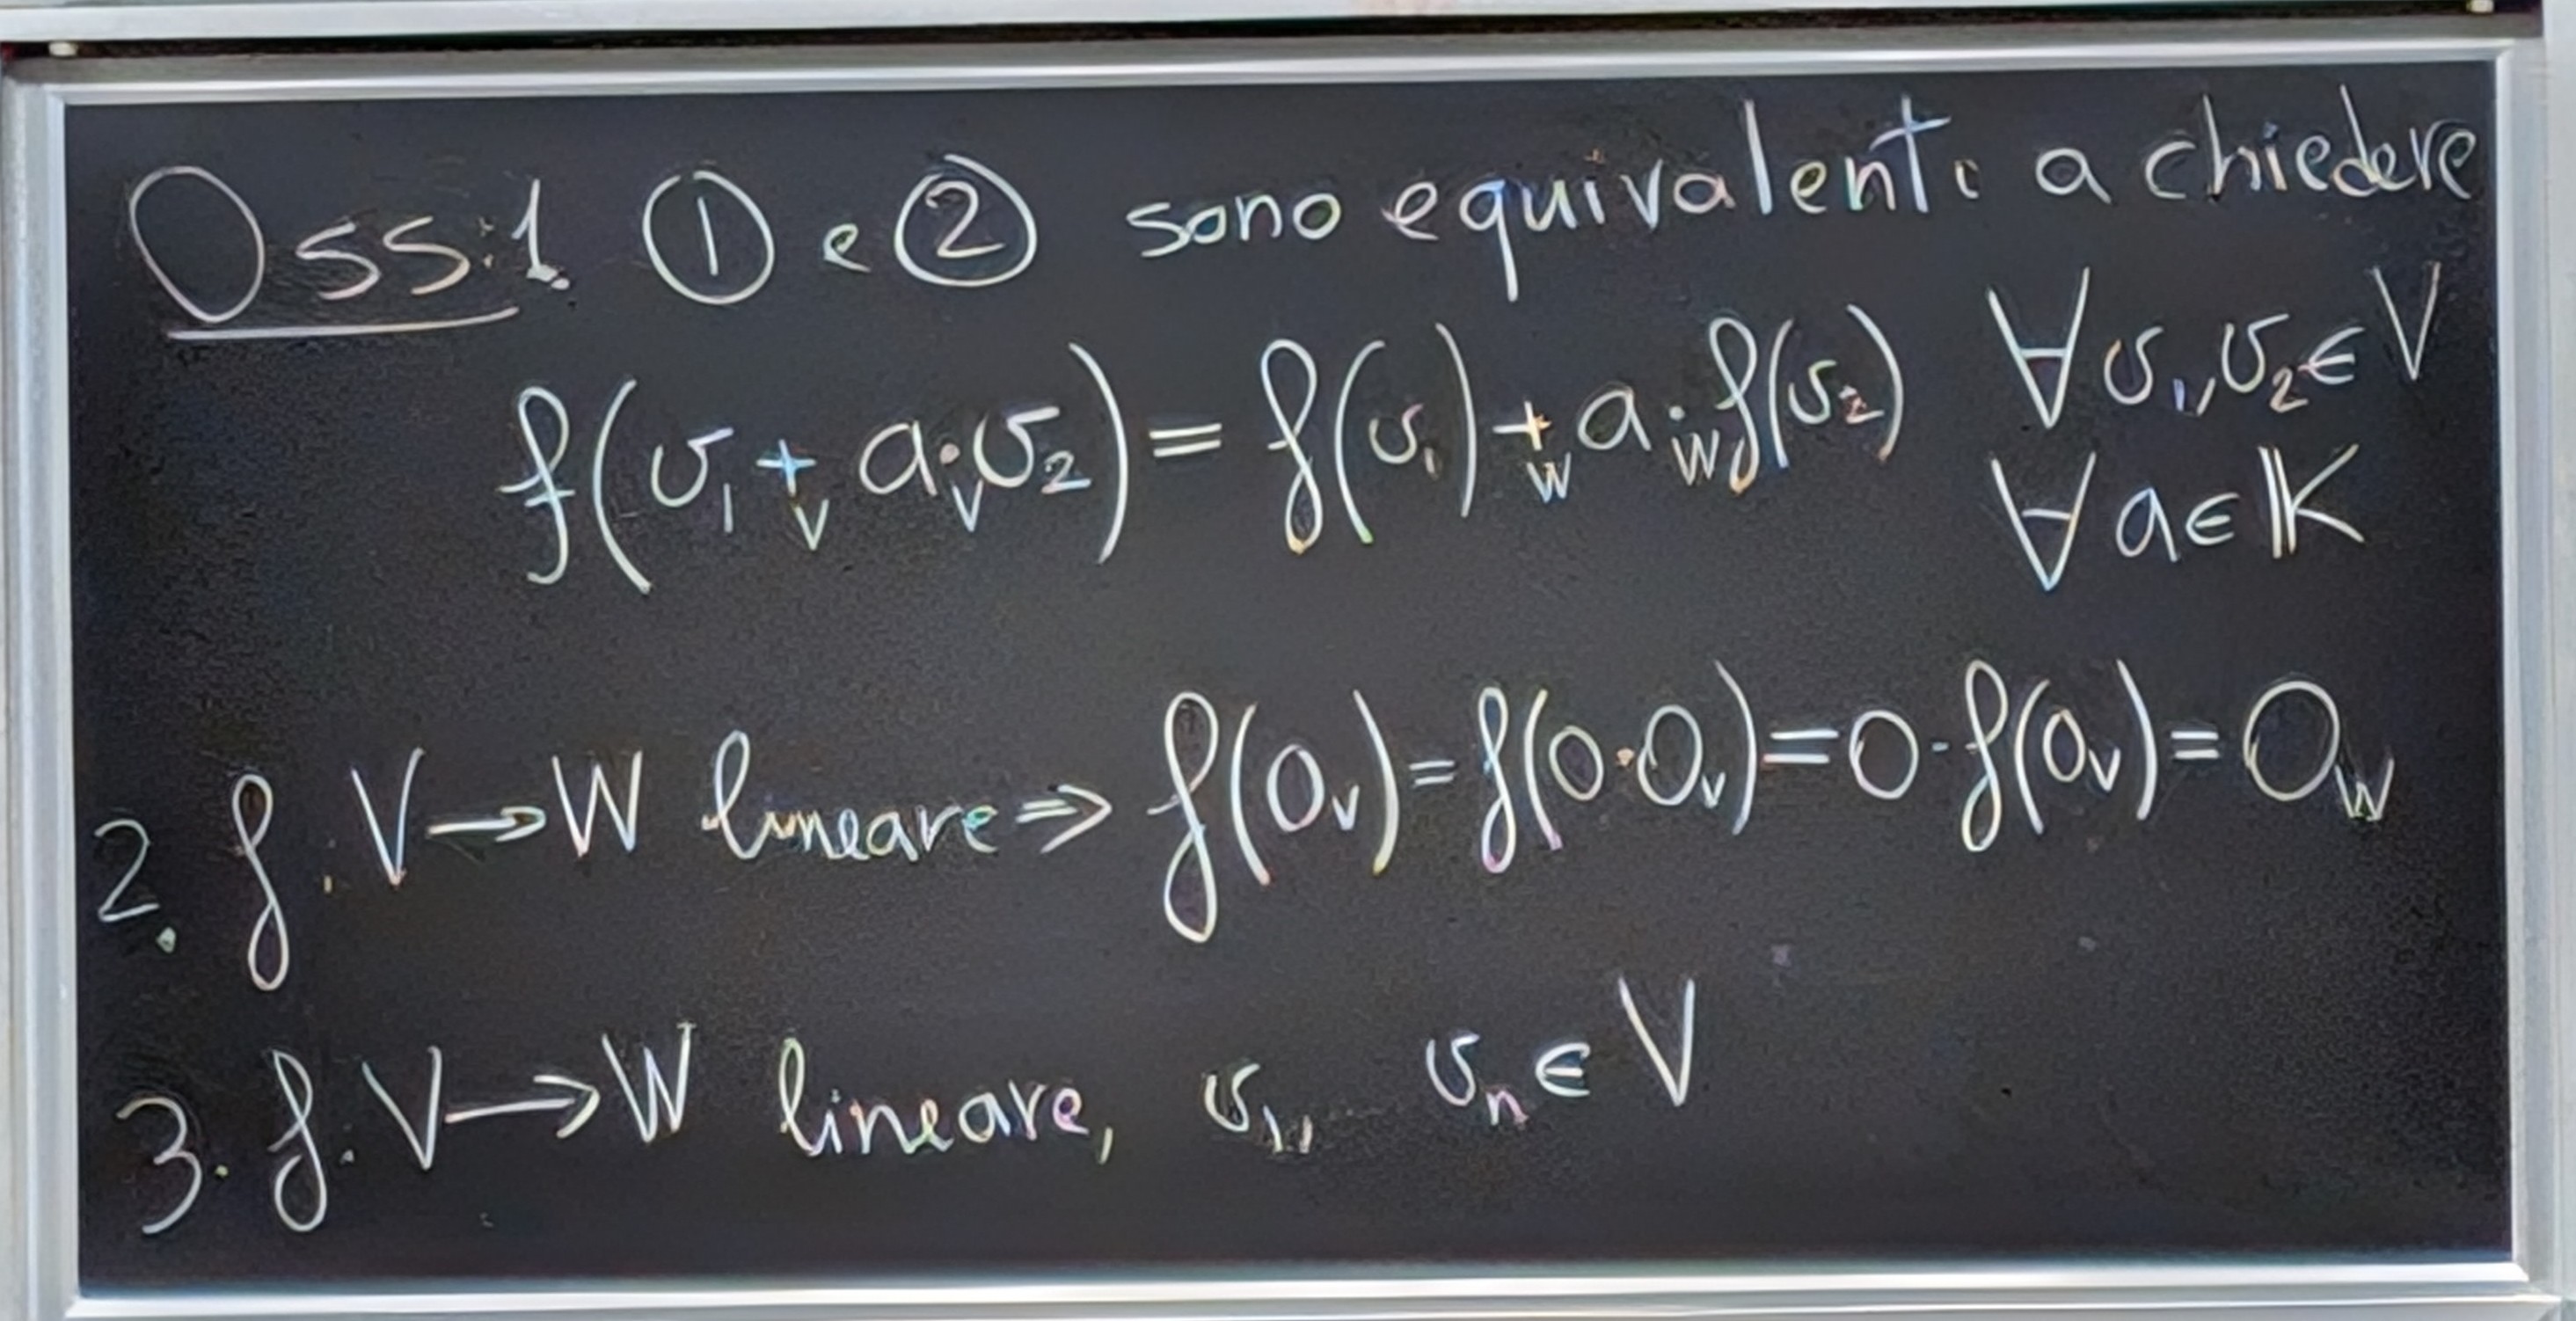 Oss:1. ① e ② sono equivalenti a chiedere
f(v₁ +_V a ·_V v₂) = f(v₁) +_W a ·_W f(v₂) ∀ v₁, v₂ ∈ V
∀ a ∈ 𝕂
2. f: V → W lineare ⇒ f(0_V) = f(0·0_V) = 0·f(0_V) = 0_W
3. f: V → W lineare, v₁, v_n ∈ V